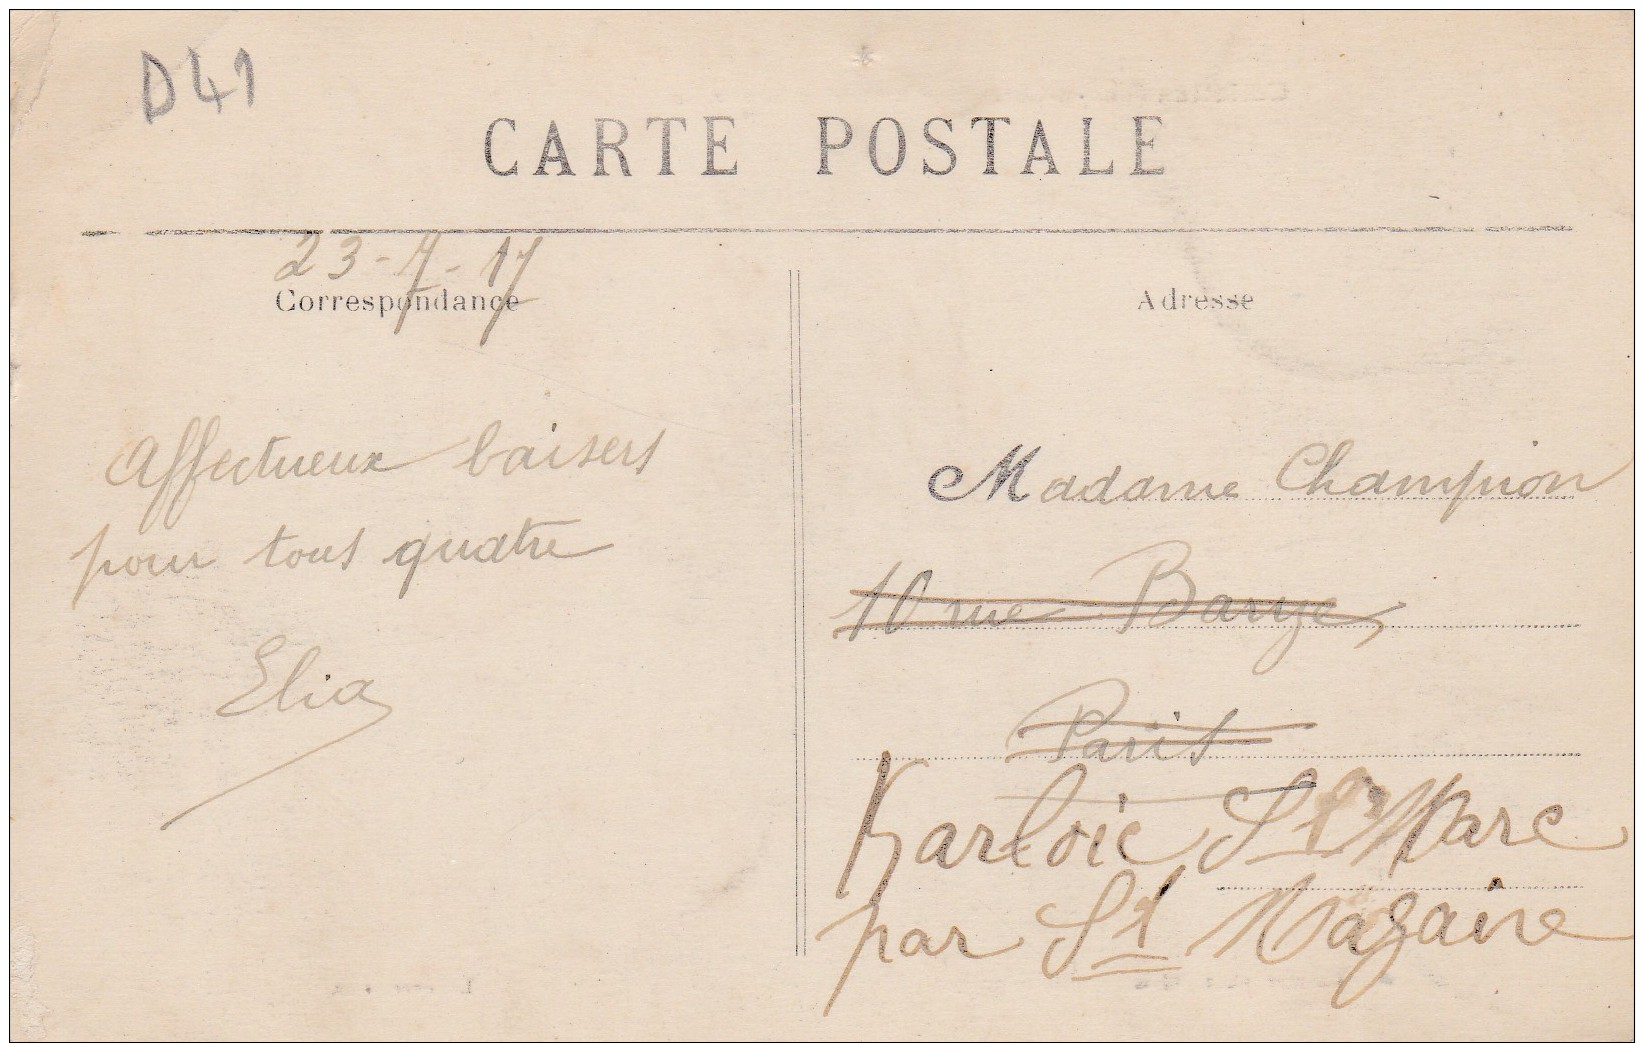 D41
CARTE POSTALE
23-7-17
Correspondance
Adresse
Affectueux baisers
pour tous quatre
Elia
Madame Champion
10 rue Barye
Paris
Karloie St Marc
par St Nazaire